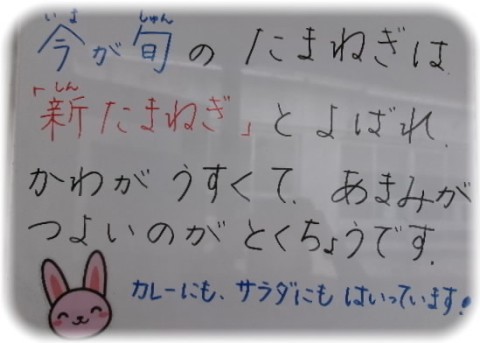 今が旬のたまねぎは、
「新たまねぎ」とよばれ、
かわがうすくて、あまみが
つよいのがとくちょうです。
カレーにも、サラダにもはいっています!